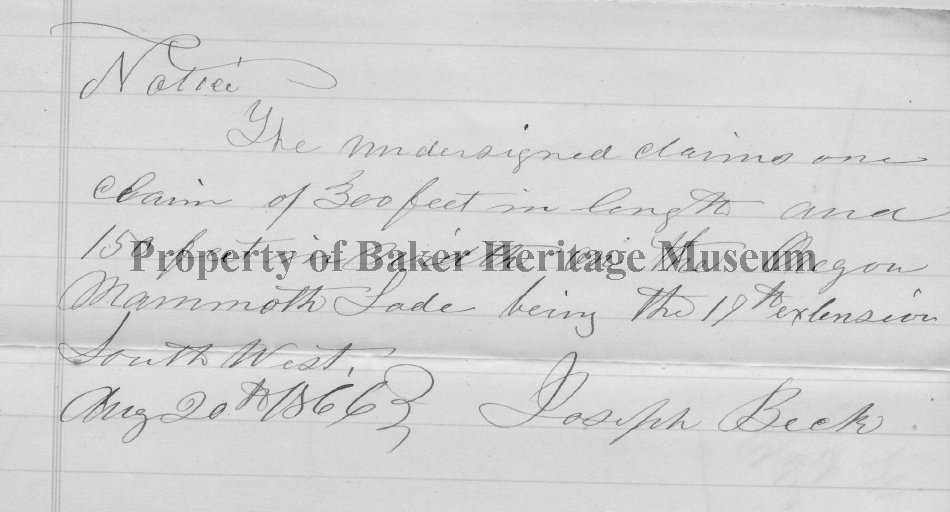 Notice
The undersigned claims one
claim of 300 feet in length and
150 feet in width on the Oregon
Property of Baker Heritage Museum
Mammoth Lode being the 17th extension
South West.
Aug 20th 1866 Joseph Beck